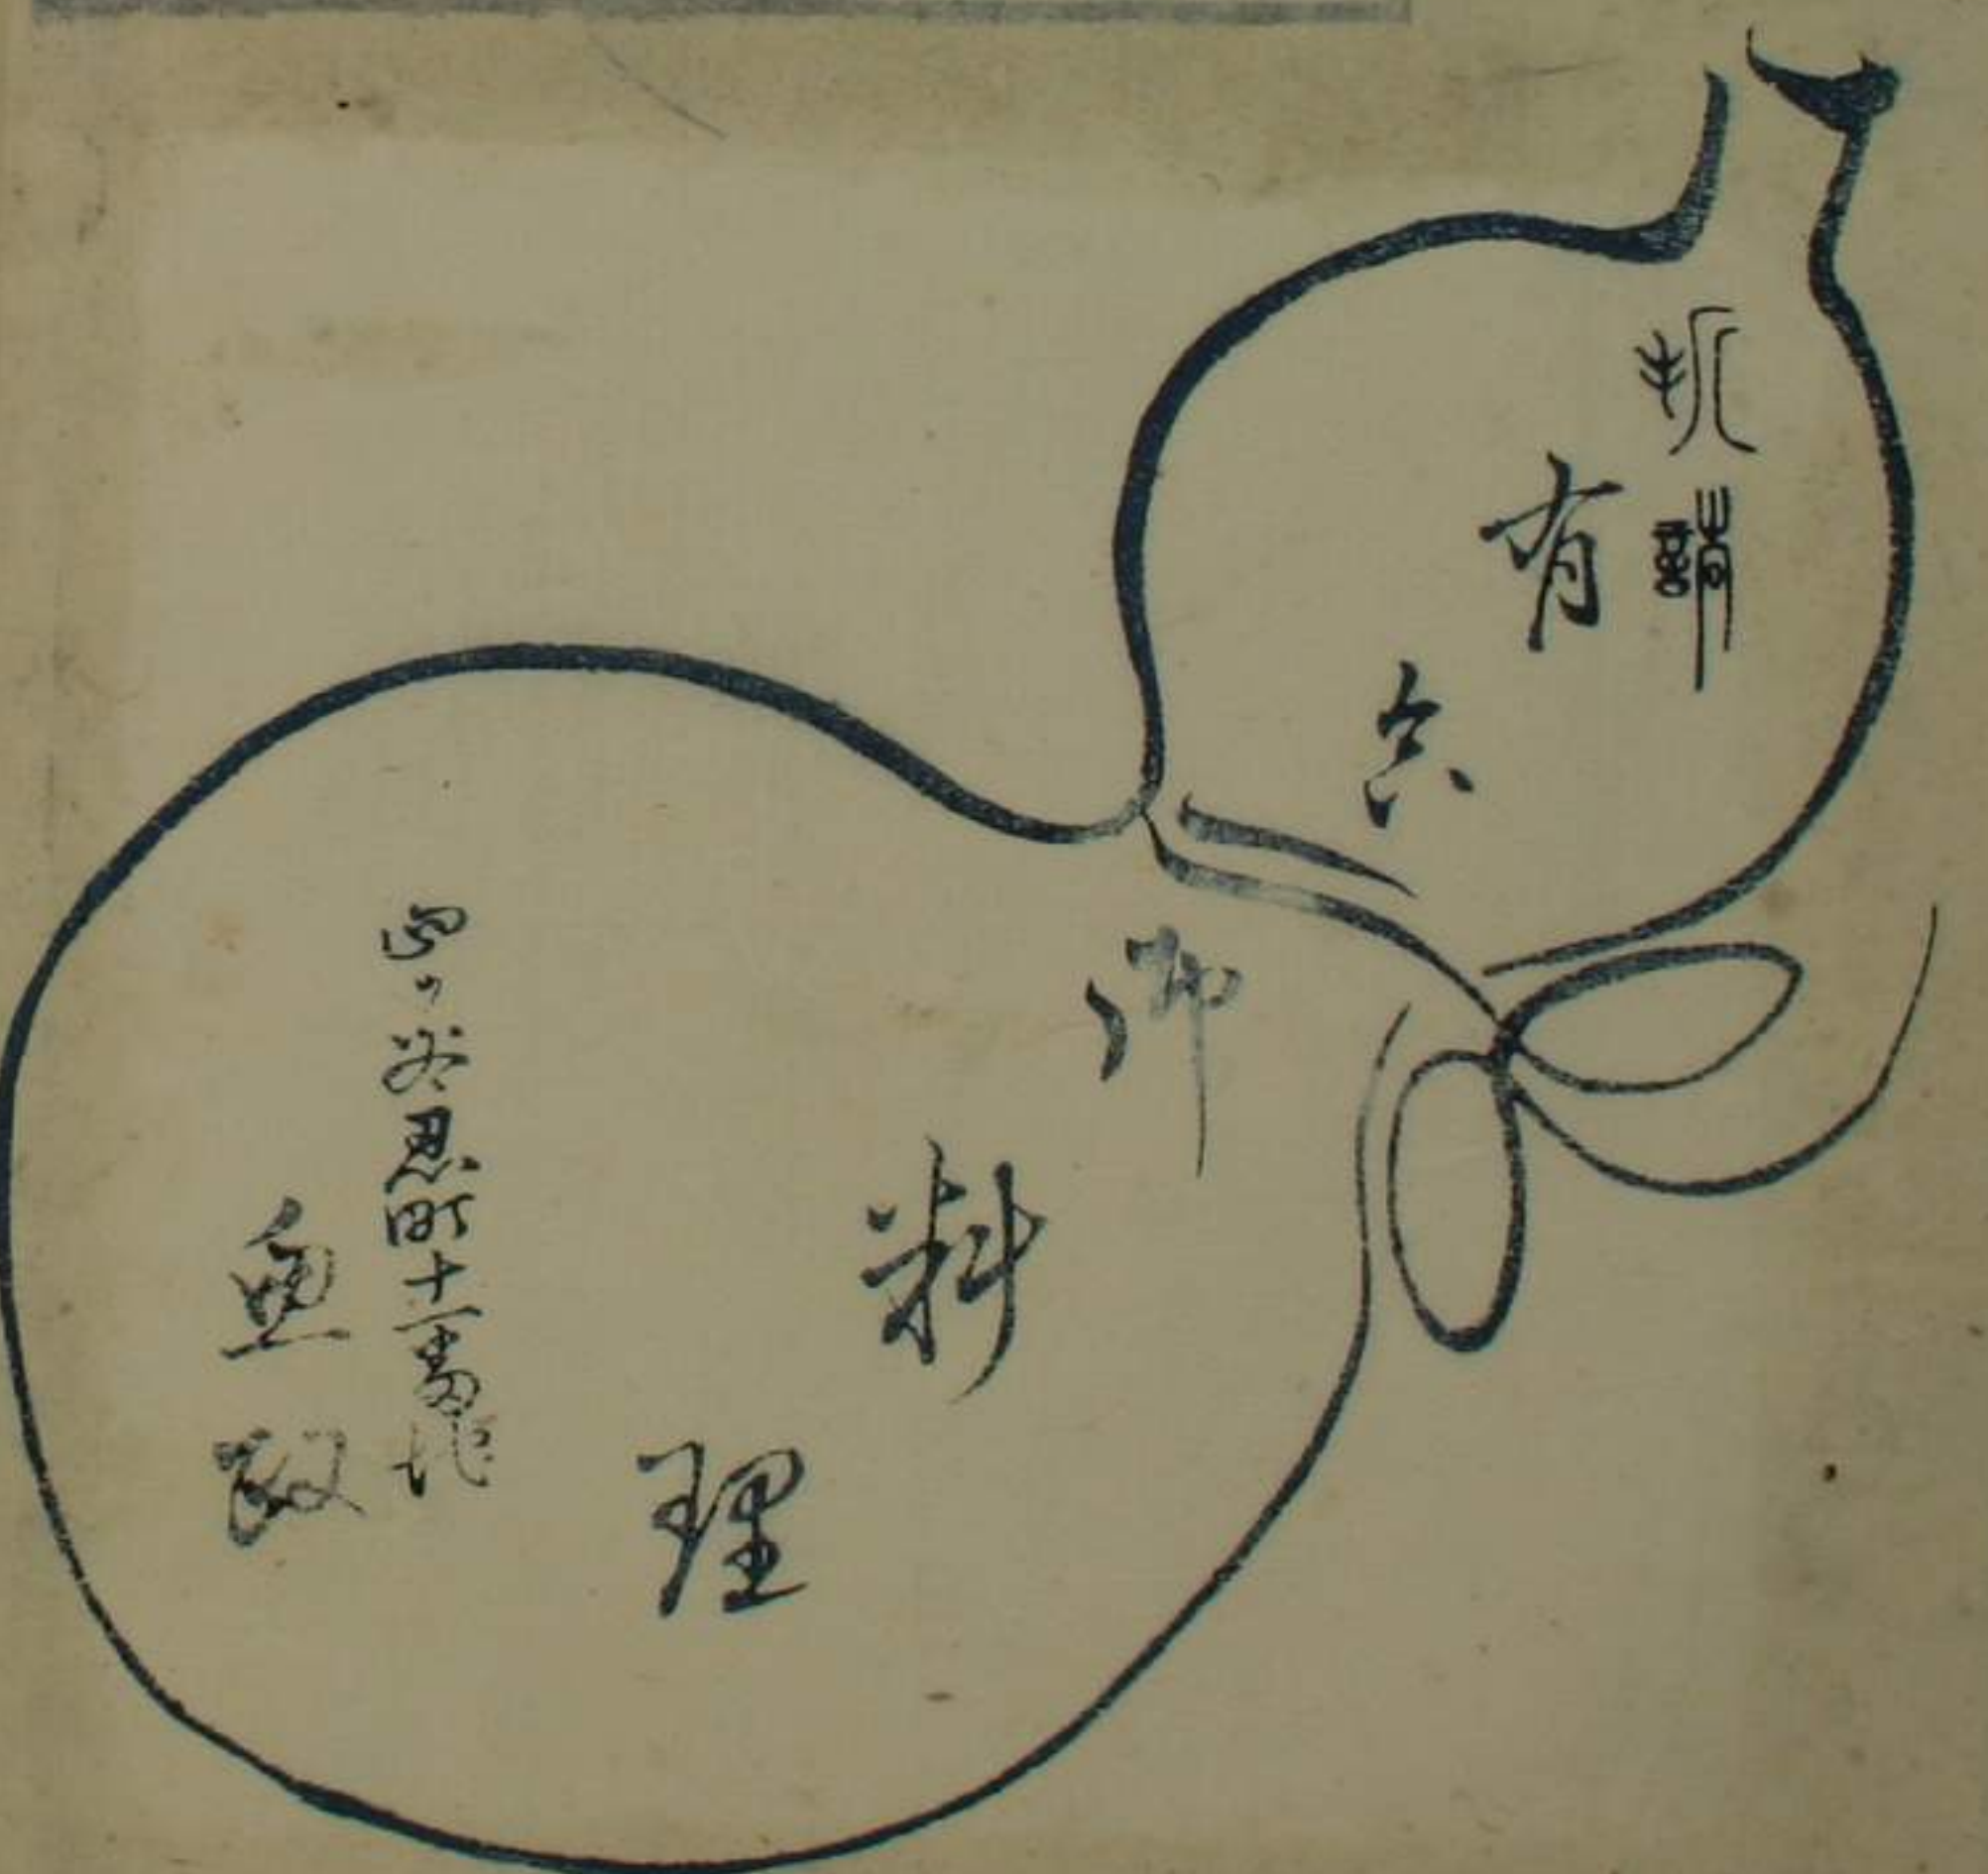 折詰
有合
御料理
四ッ谷忍町十一番地
魚政